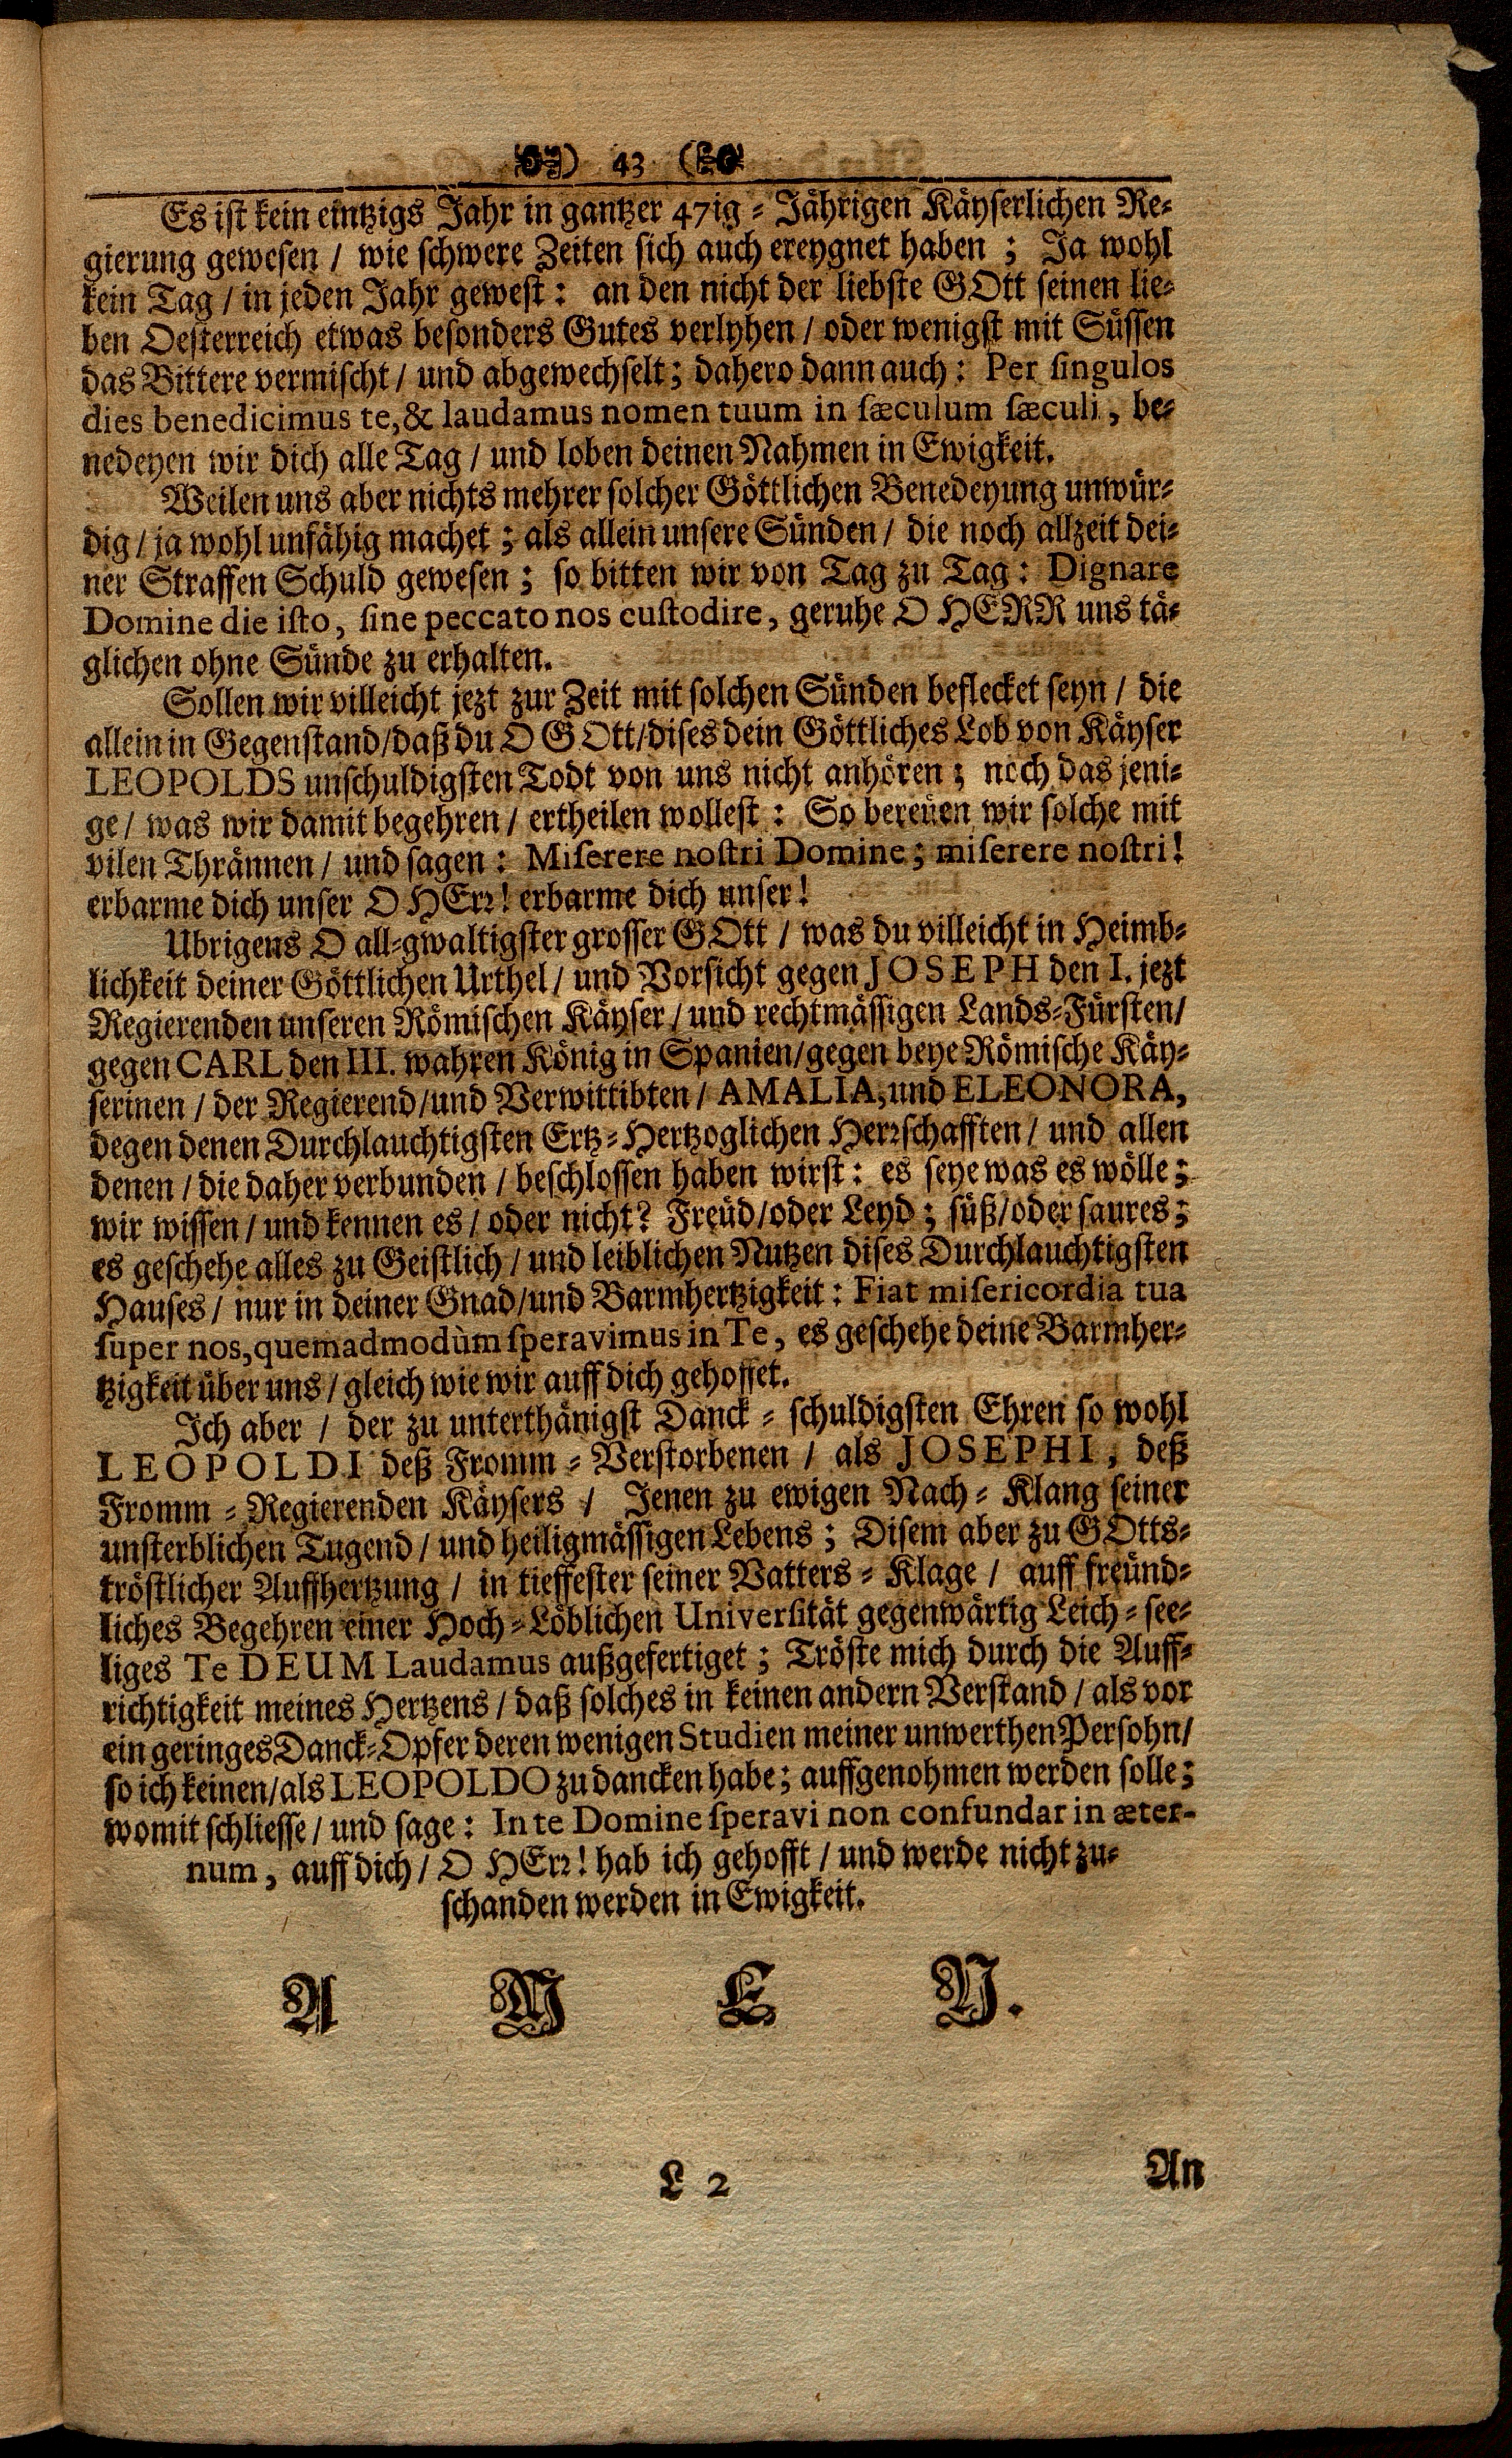 ) 43 (
Es ist kein eintzigs Jahr in gantzer 47ig = Jährigen Käyserlichen Re=
gierung gewesen / wie schwere Zeiten sich auch ereygnet haben ; Ja wohl
kein Tag / in jeden Jahr gewest : an den nicht der liebste GOtt seinen lie=
ben Oesterreich etwas besonders Gutes verlyhen / oder wenigst mit Süssen
das Bittere vermischt / und abgewechselt ; dahero dann auch : Per ſingulos
dies benedicimus te, & laudamus nomen tuum in ſæculum ſæculi , be=
nedeyen wir dich alle Tag / und loben deinen Nahmen in Ewigkeit.
Weilen uns aber nichts mehrer solcher Göttlichen Benedeyung unwür=
dig / ja wohl unfähig machet ; als allein unsere Sünden / die noch allzeit dei=
ner Straffen Schuld gewesen ; so bitten wir von Tag zu Tag : Dignare
Domine die iſto, ſine peccato nos cuſtodire, geruhe O HERR uns tä=
glichen ohne Sünde zu erhalten.
Sollen wir villeicht jezt zur Zeit mit solchen Sünden beflecket seyn / die
allein in Gegenstand/daß du O GOtt/dises dein Göttliches Lob von Käyser
LEOPOLDS unschuldigsten Todt von uns nicht anhören ; noch das jeni=
ge / was wir damit begehren / ertheilen wollest : So bereüen wir solche mit
vilen Thrännen / und sagen : Miſerere noſtri Domine ; miſerere noſtri !
erbarme dich unser O HErr ! erbarme dich unser !
Ubrigens O all=gwaltigster grosser GOtt / was du villeicht in Heimb=
lichkeit deiner Göttlichen Urthel / und Vorsicht gegen JOSEPH den I. jezt
Regierenden unseren Römischen Käyser / und rechtmässigen Lands=Fürsten/
gegen CARL den III. wahren König in Spanien/gegen beye Römische Käy=
serinen / der Regierend/und Verwittibten / AMALIA, und ELEONORA,
degen denen Durchlauchtigsten Ertz=Hertzoglichen Herrschafften / und allen
denen / die daher verbunden / beschlossen haben wirst : es seye was es wölle ;
wir wissen / und kennen es / oder nicht? Freüd/oder Leyd ; süß/oder saures ;
es geschehe alles zu Geistlich / und leiblichen Nutzen dises Durchlauchtigsten
Hauses / nur in deiner Gnad/und Barmhertzigkeit : Fiat miſericordia tua
ſuper nos, quemadmodùm ſperavimus in Te, es geschehe deine Barmher=
tzigkeit über uns / gleich wie wir auff dich gehoffet.
Ich aber / der zu unterthänigst Danck = schuldigsten Ehren so wohl
LEOPOLDI deß Fromm = Verstorbenen / als JOSEPHI, deß
Fromm = Regierenden Käysers / Jenen zu ewigen Nach = Klang seiner
unsterblichen Tugend / und heiligmässigen Lebens ; Disem aber zu GOtts=
tröstlicher Auffhertzung / in tieffester seiner Vatters = Klage / auff freünd=
liches Begehren einer Hoch = Löblichen Univerſität gegenwärtig Leich = see=
liges Te DEUM Laudamus außgefertiget ; Tröste mich durch die Auff=
richtigkeit meines Hertzens / daß solches in keinen andern Verstand / als vor
ein geringes Danck=Opfer deren wenigen Studien meiner unwerthen Persohn/
so ich keinen/als LEOPOLDO zu dancken habe ; auffgenohmen werden solle ;
womit schliesse / und sage : In te Domine ſperavi non confundar in æter-
num , auff dich / O HErr ! hab ich gehofft / und werde nicht zu=
schanden werden in Ewigkeit.
A M E N.
L 2
An